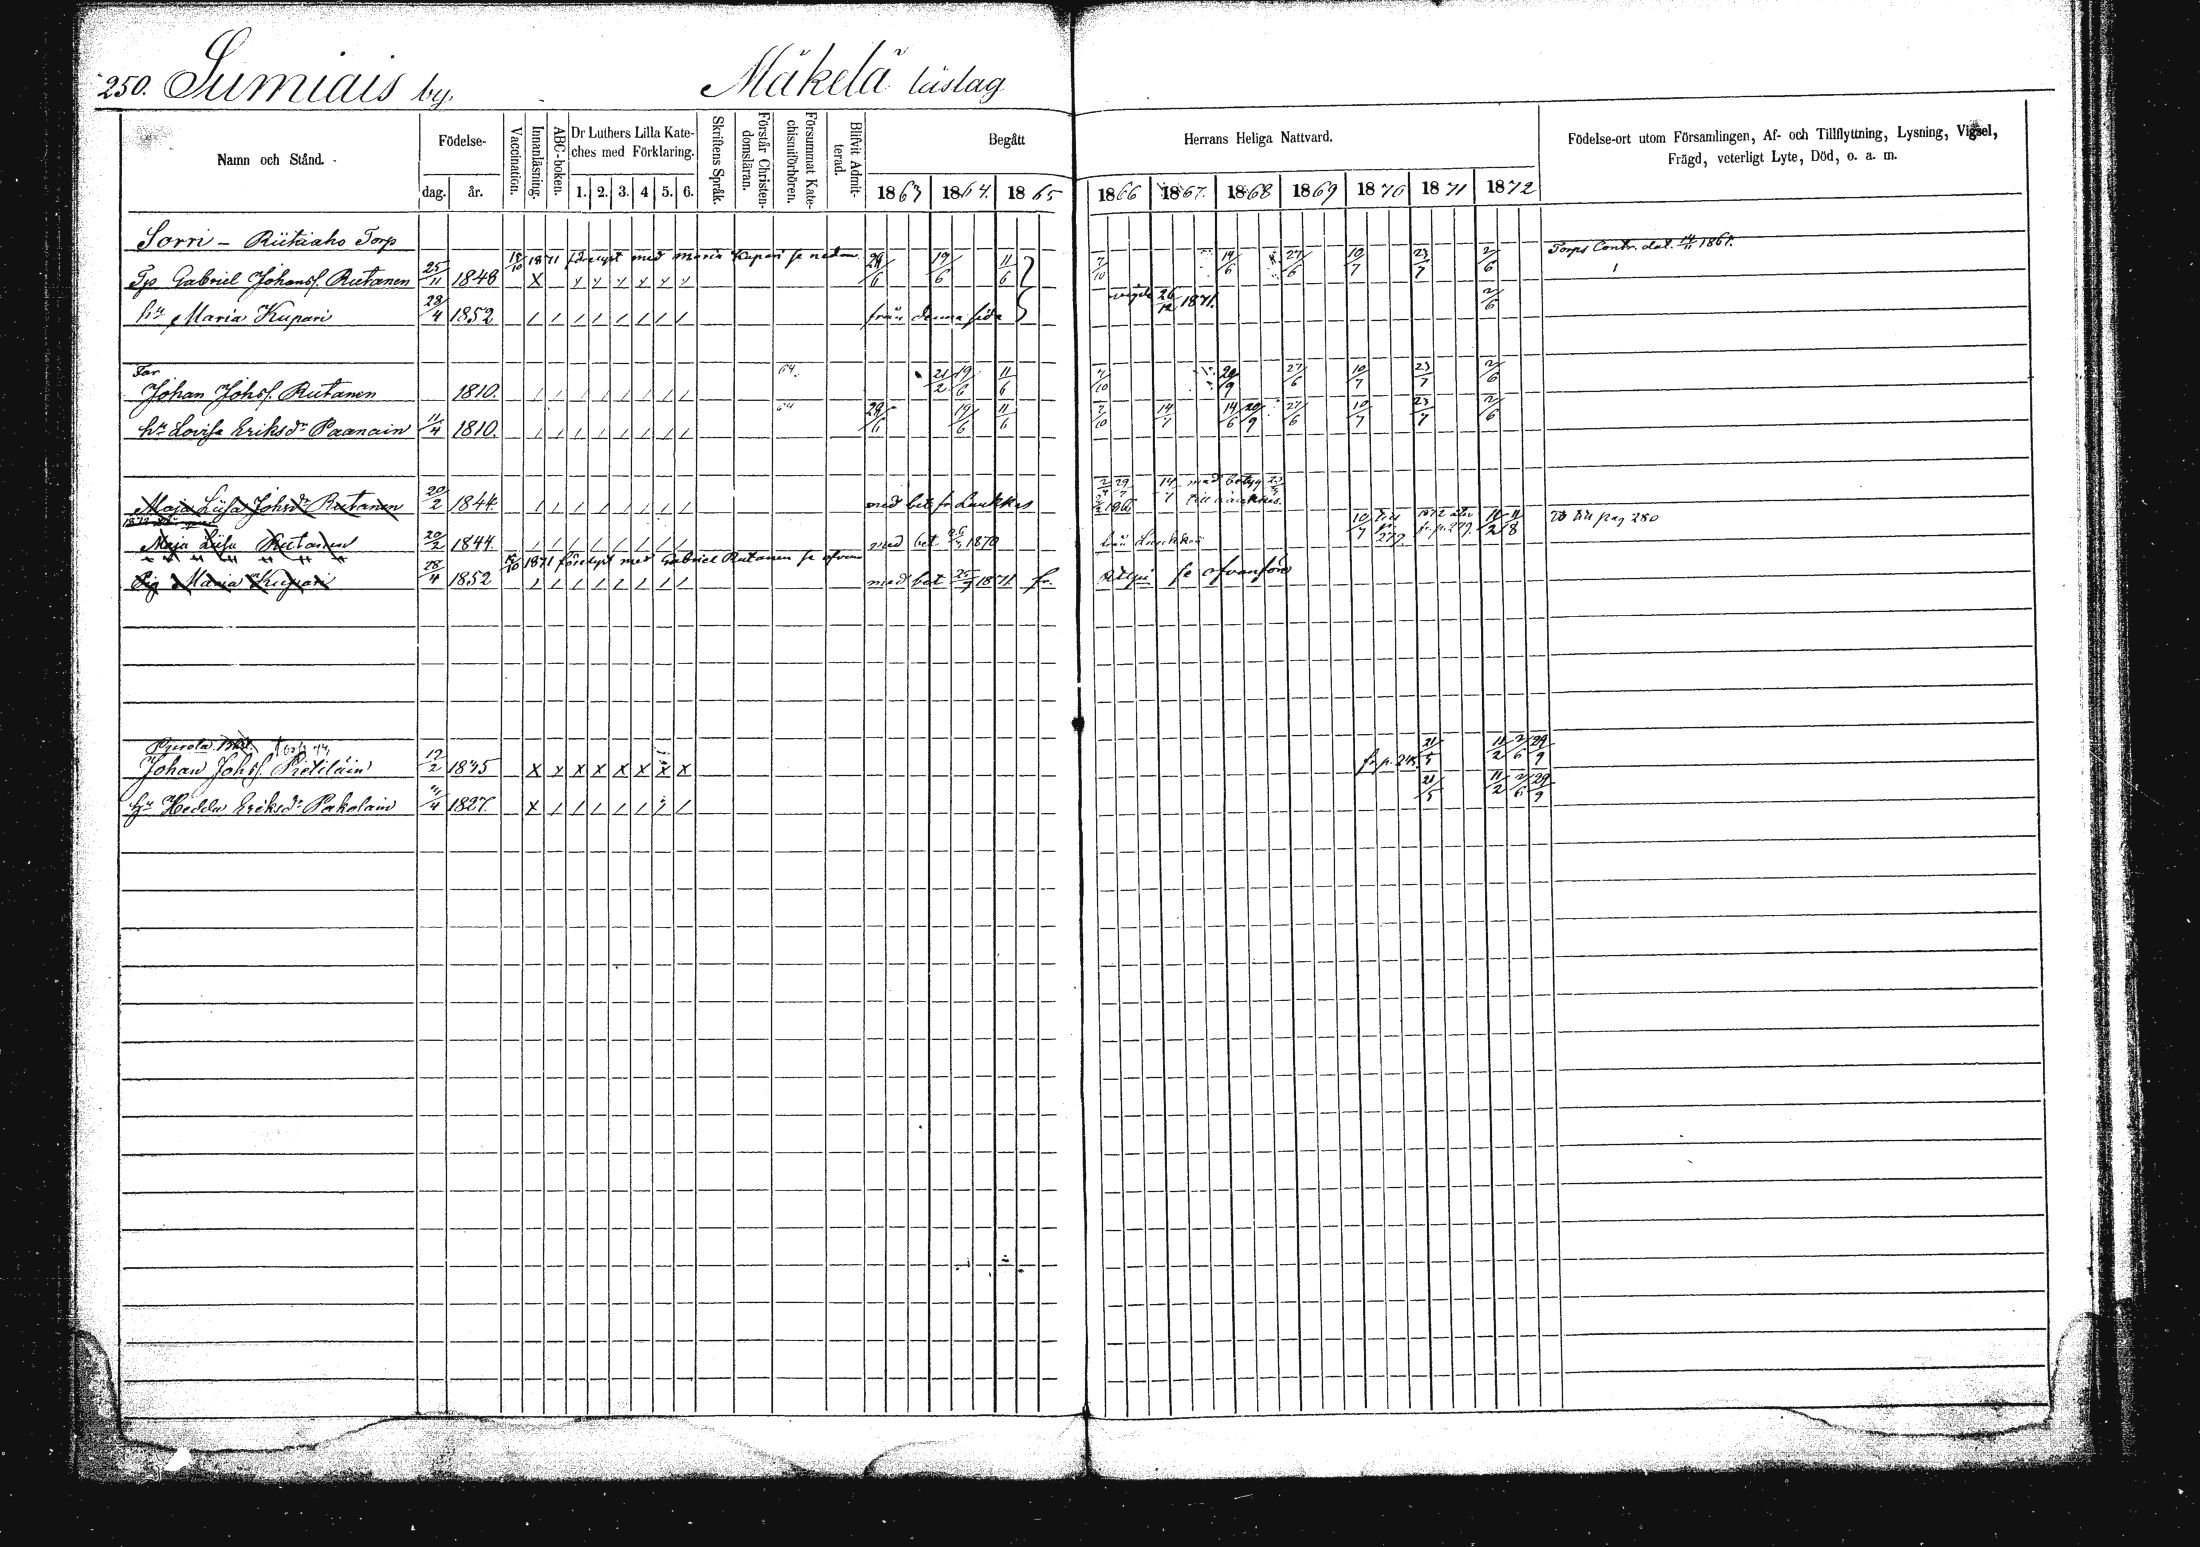 250. Sumiais by. Mäkelä lüslag
Namn och Stånd. Födelse- dag. år. Vaccination. Innanläsning. ABC-boken. Dr Luthers Lilla Kateches med Förklaring. 1. 2. 3. 4 5. 6. Skriftens Språk. Förstår Christendomsläran. Försummat Katechismiförhören. Blifvit Admitterad. Begått Herrans Heliga Nattvard. Födelse-ort utom Församlingen, Af- och Tillflyttning, Lysning, Vigsel, Frägd, veterligt Lyte, Död, o. a. m.
1863 1864. 1865 1866 1867. 1868 1869 1870 1871 1872
Sorri - Riitaaho Torp Torps Contr. dat. 1861.
15/10 1871 förelyst med Maria Kupari se nedan
Tp Gabriel Johanss. Riitanen 25/11 1848 X 19/6 11/6 7/10 19/6 27/6 10/7 23/7 2/6
hu Maria Kupari 28/4 1852 från denna sida vigde 26/12 1871. 2/6
Far
Johan Johss. Riitanen 1810. 64. 21/2 19/6 11/6 7/10 20/9 27/6 10/7 23/7 2/6
hu Lovisa Eriksdr Paanain 11/4 1810. 64 19/6 11/6 7/10 14/7 14/6 20/9 27/6 10/7 23/7 2/6
Maja Liisa Johsdr Riitanen 20/2 1844. med bet. fr Laukkas 1866 med betyg till Laukkas.
Maja Liisa Riitanen 20/2 1844. med bet. 1870 från Laukkas 10/7 till p. 279. 1872 åter fr. p. 279. 11/2 11/8 till pag 280
15/10 1871 förelyst med Gabriel Riitanen se ofvan
Pig Maria Kupari 28/4 1852 med bet 1871 fr. se ofvanföre
Johan Johss. Pietiläin 12/2 1845 X X X X X X X fr p. 248. 21/5 11/2 2/6 29/9
hu Hedda Eriksdr Pakolain 4/4 1827. X 21/5 11/2 2/6 29/9